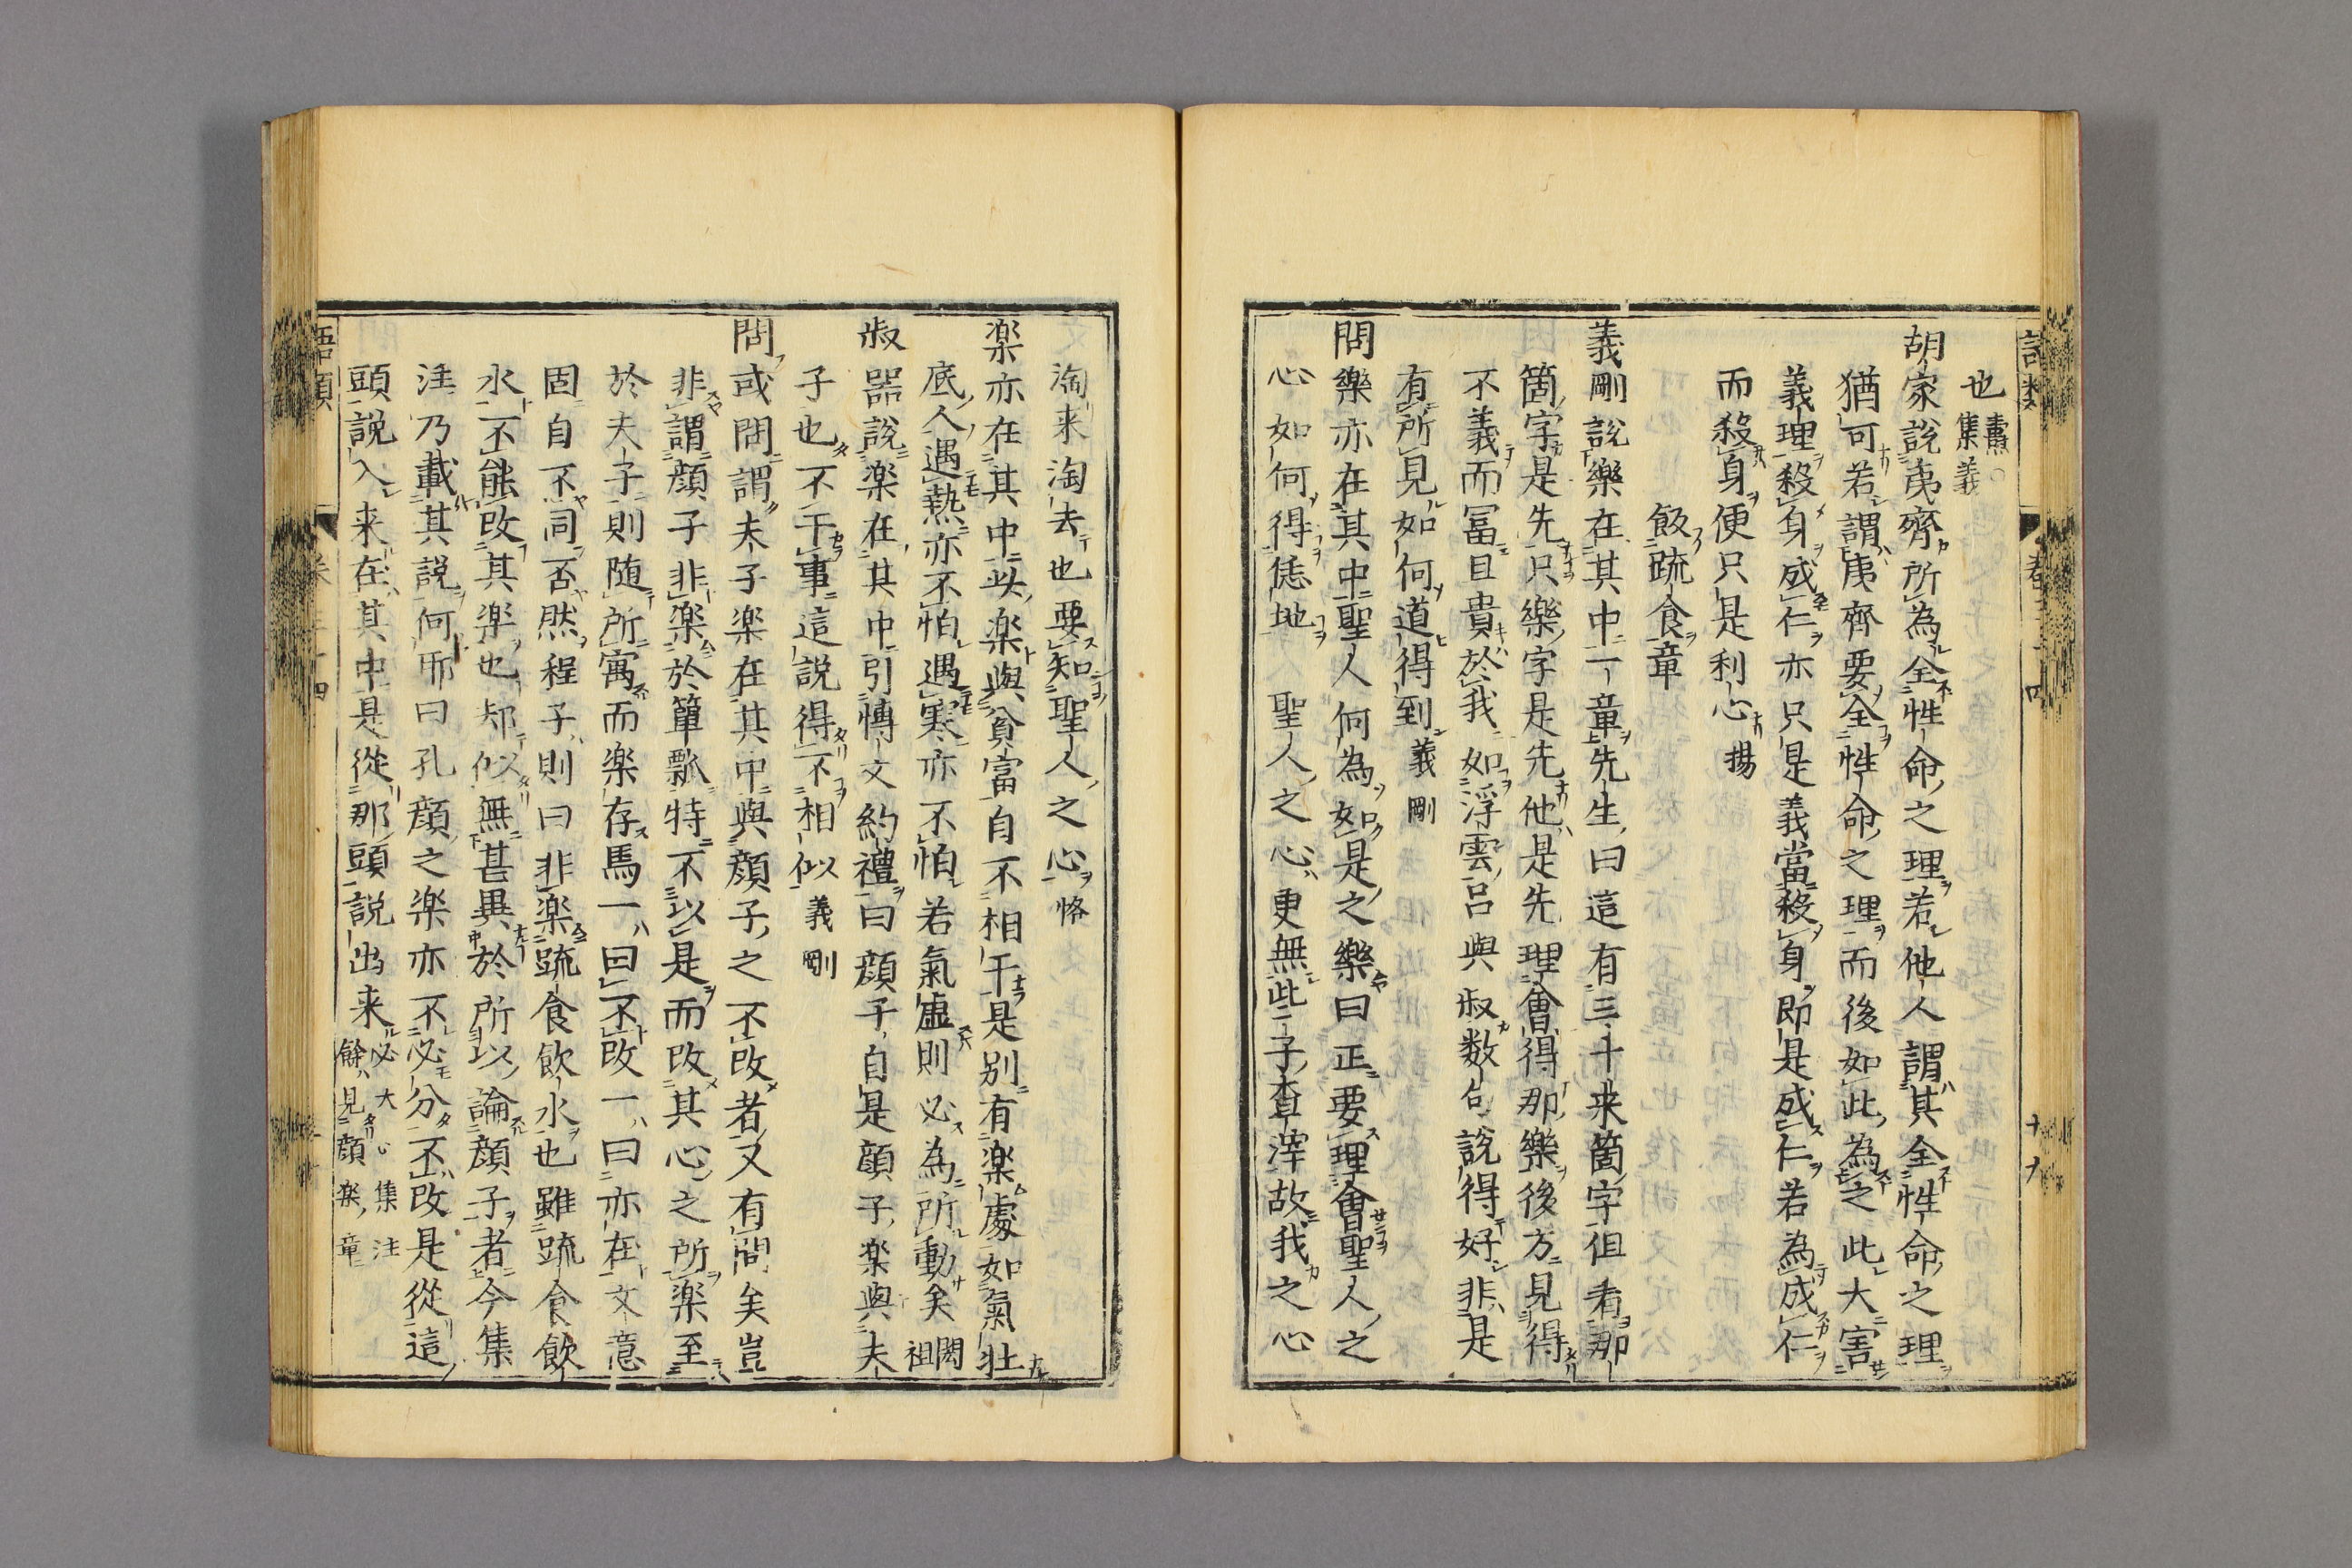 也 燾○集義
胡家說夷齊所為全性命之理若他人謂其全性命之理
猶可若謂夷齊要全性命之理而後如此為之此大害
義理殺身成仁亦只是義當殺身即是成仁若為成仁
而殺身便只是利心 揚
飯疏食章
義剛說樂在其中一章先生曰這有三十来箇字但看那
箇字是先只樂字是先他是先理會得那樂後方見得
不義而冨且貴於我如浮雲呂與叔数句說得好非是
有所見如何道得到 義剛
問樂亦在其中聖人何為如是之樂曰正要理會聖人之
心如何得恁地 聖人之心更無些子查滓故我之心
淘来淘去也要知聖人之心 恪
楽亦在其中此楽與貧富自不相干是别有楽處如氣壯
底人遇熱亦不怕遇寒亦不怕若氣虛則必為所動矣 閎祖
叔器説楽在其中引博文約禮曰顔子自是顔子楽與夫
子也不干事這説得不相似 義剛
問或問謂夫子楽在其中與顔子之不改者又有間矣豈
非謂顔子非楽於簞瓢特不以是而改其心之所楽至
於夫子則随所寓而楽存焉一曰不改一曰亦在文意
固自不同否然程子則曰非楽疏食飲水也雖疏食飲
水不能改其楽也却似無甚異於所以論顔子者今集
注乃載其説何耶曰孔顔之楽亦不必分不改是從這
頭説入来在其中是從那頭説出来 必大○集注
餘見顔楽章
語類
卷三十四
十九